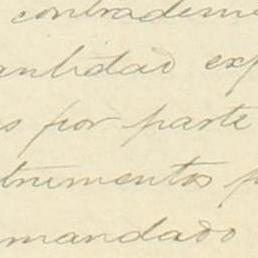 contradem
antidad exp
s por parte
trumentos p
mandado